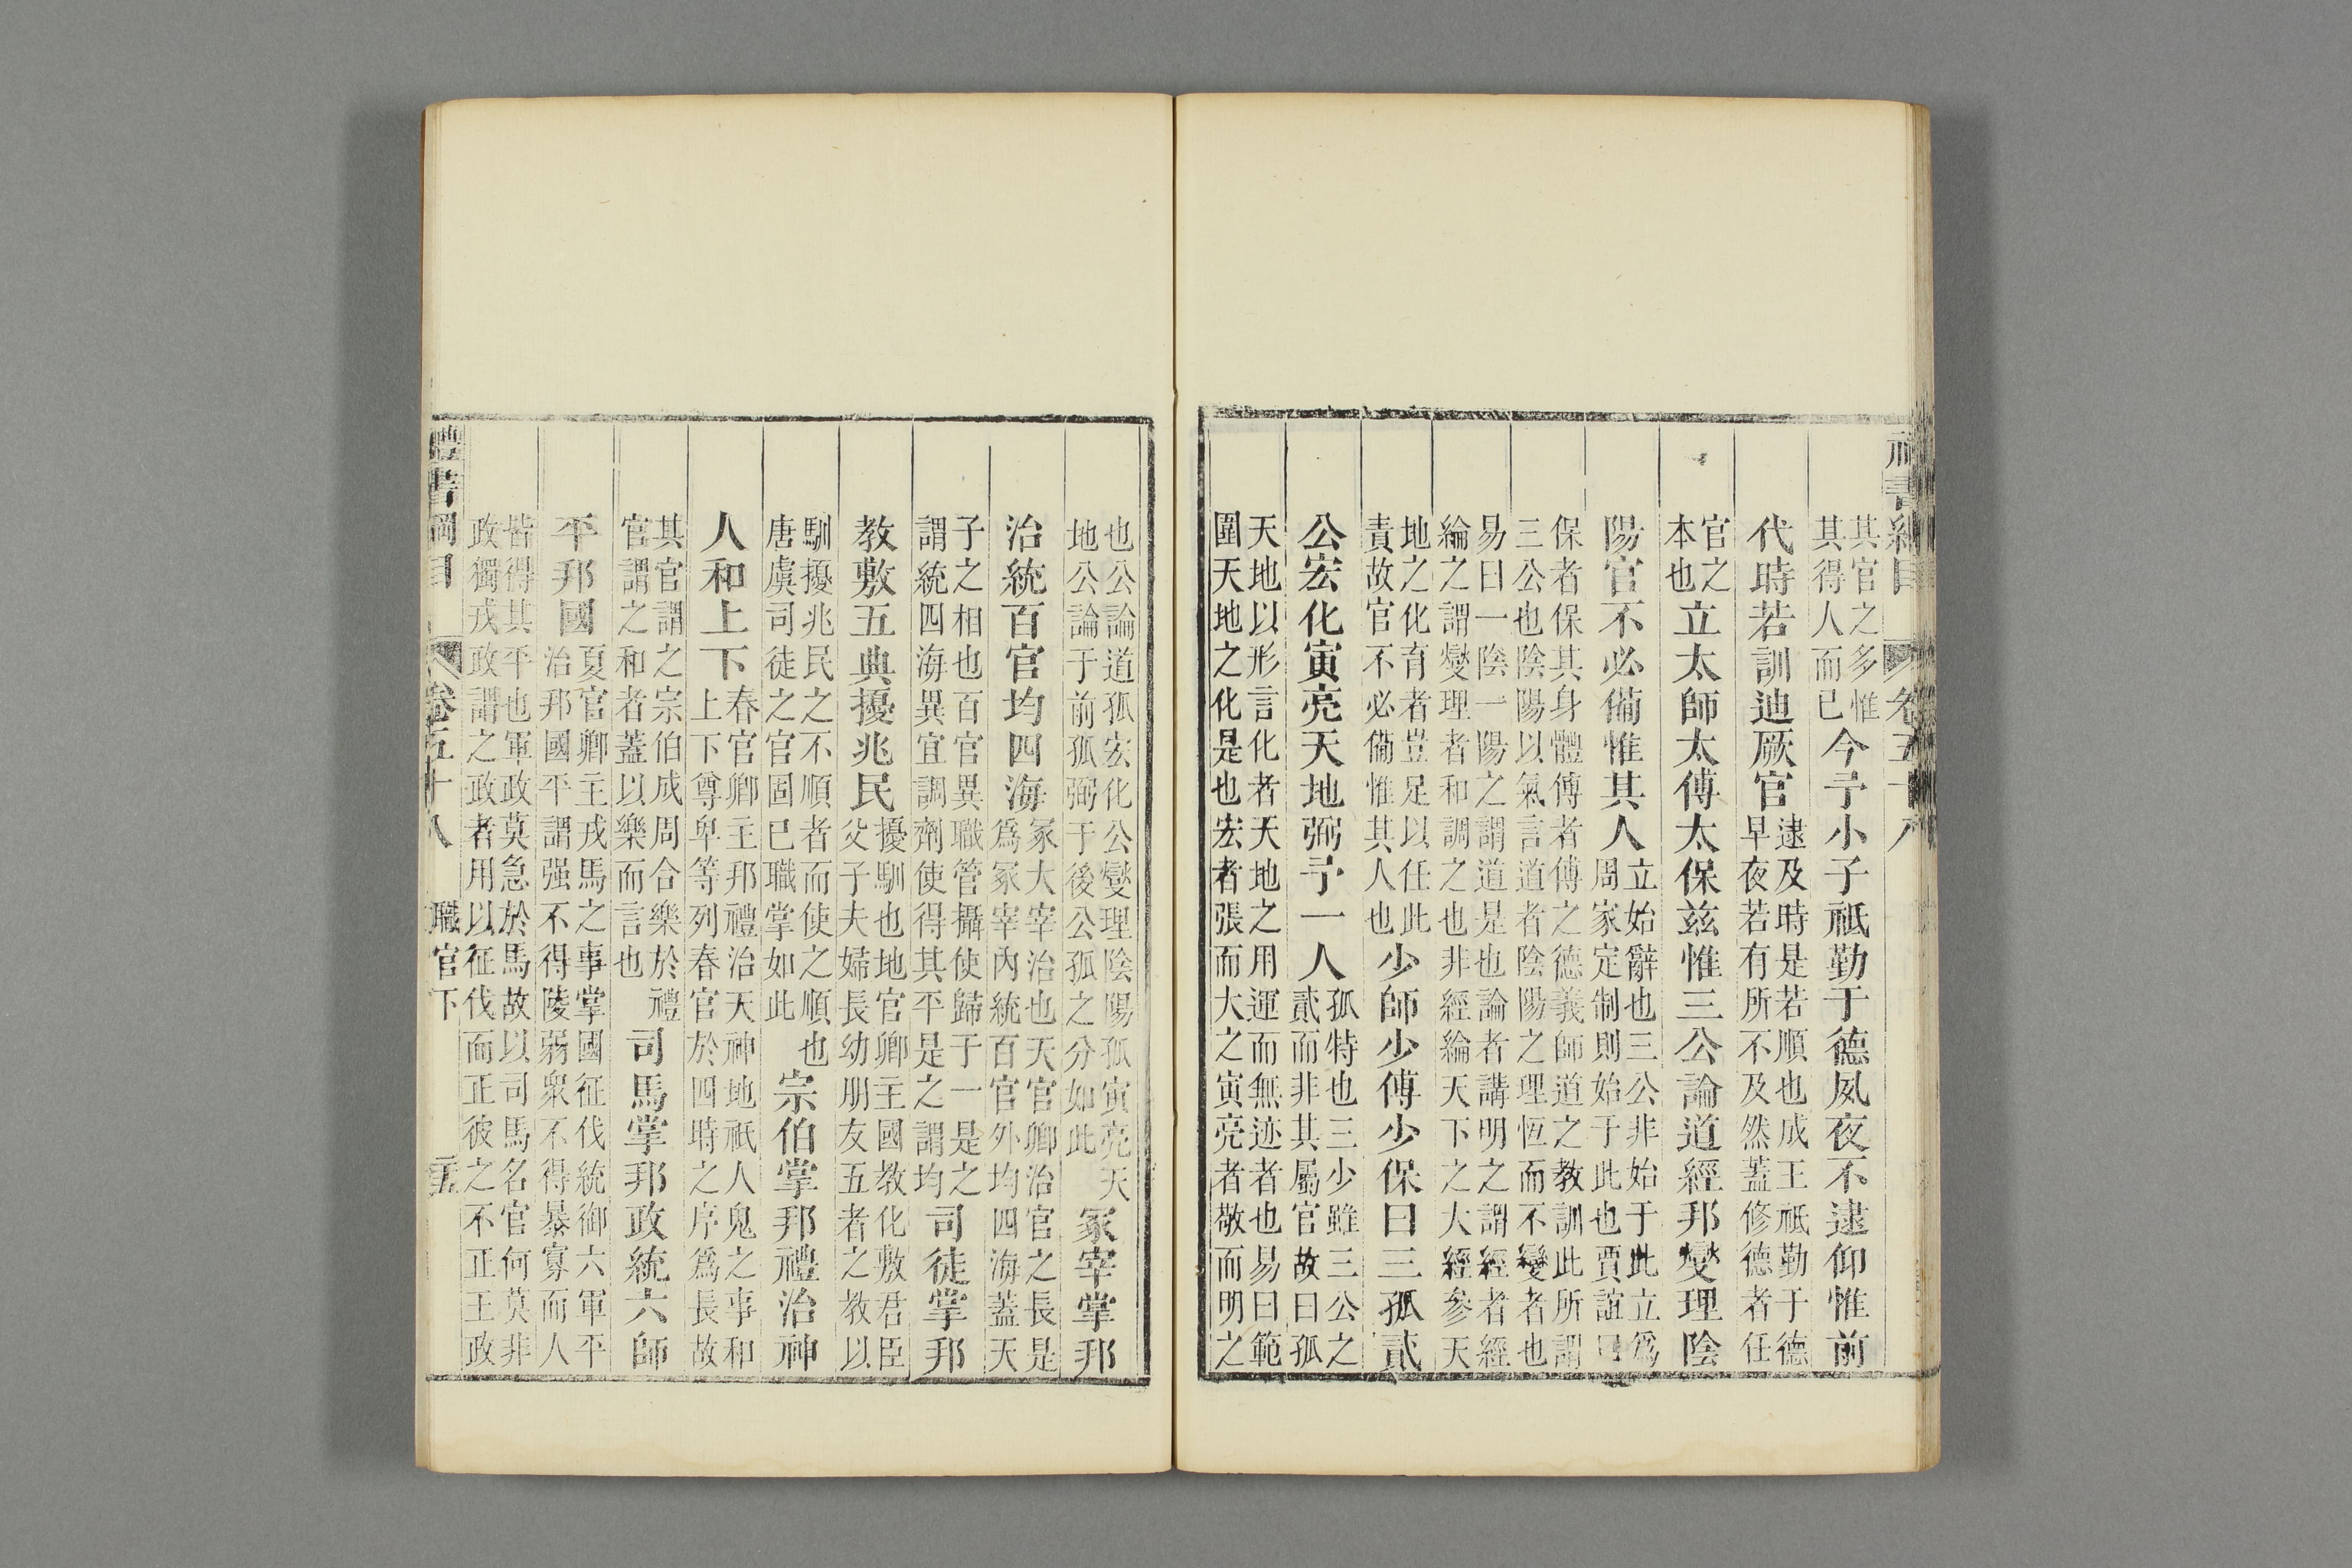 其官之多惟其得人而已今予小子祗勤于德夙夜不逮仰惟前
代時若訓迪厥官逮及時是若順也成王祗勤于德早夜若有所不及然蓋修德者任
官之本也立太師太傅太保茲惟三公論道經邦燮理陰
陽官不必備惟其人立始辭也三公非始于此立爲周家定制則始于此也賈誼曰
保者保其身體傅者傅之德義師道之教訓此所謂三公也陰陽以氣言道者陰陽之理恆而不變者也
易曰一陰一陽之謂道是也論者講明之謂經者經綸之謂燮理者和調之也非經綸天下之大經參天
地之化育者豈足以任此責故官不必備惟其人也少師少傅少保曰三孤貳
公宏化寅亮天地弼予一人孤特也三少雖三公之貳而非其屬官故曰孤
天地以形言化者天地之用運而無迹者也易曰範圍天地之化是也宏者張而大之寅亮者敬而明之
也公論道孤宏化公燮理陰陽孤寅亮天地公論于前孤弼于後公孤之分如此冢宰掌邦
治統百官均四海冢大宰治也天官卿治官之長是爲冢宰內統百官外均四海蓋天
子之相也百官異職管攝使歸于一是之謂統四海異宜調劑使得其平是之謂均司徒掌邦
教敷五典擾兆民擾馴也地官卿主國教化敷君臣父子夫婦長幼朋友五者之教以
馴擾兆民之不順者而使之順也唐虞司徒之官固已職掌如此宗伯掌邦禮治神
人和上下春官卿主邦禮治天神地祇人鬼之事和上下尊卑等列春官於四時之序爲長故
其官謂之宗伯成周合樂於禮官謂之和者蓋以樂而言也司馬掌邦政統六師
平邦國夏官卿主戎馬之事掌國征伐統御六軍平治邦國平謂强不得陵弱衆不得暴寡而人
皆得其平也軍政莫急於馬故以司馬名官何莫非政獨戎政謂之政者用以征伐而正彼之不正王政
禮書綱目 卷五十八 職官下